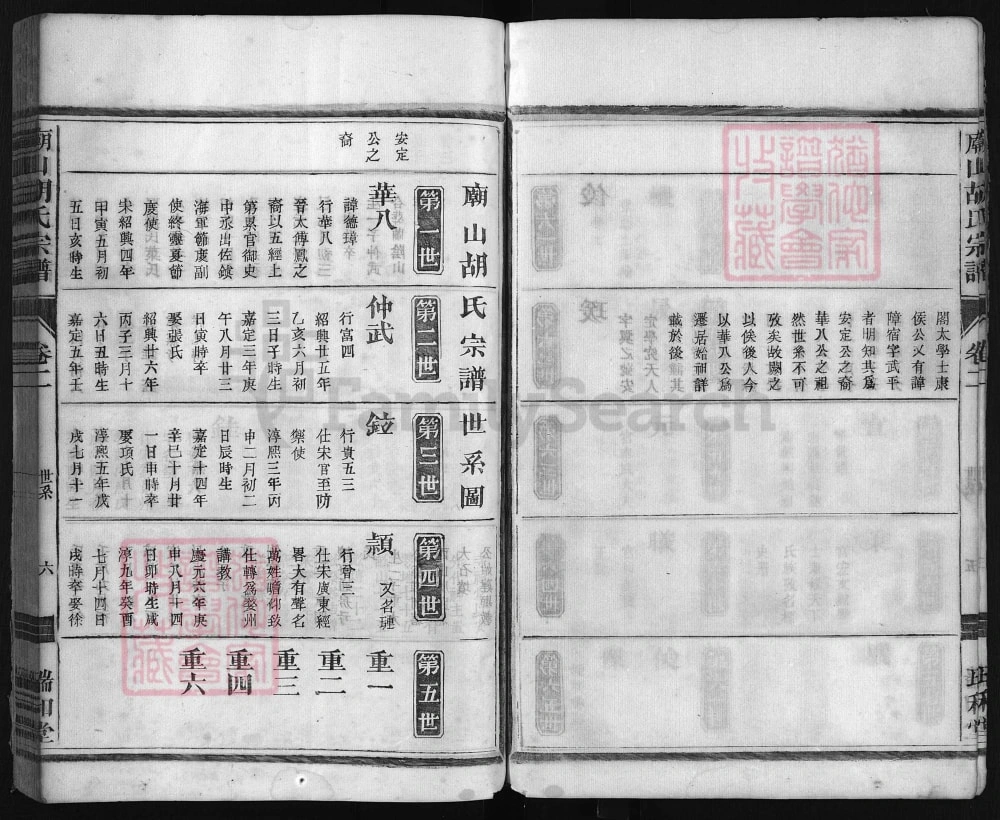 廟山胡氏宗譜
卷二
閣太學士康
侯公又有諱
障宿字武平
者朋知其爲
安定公之裔
華八公之祖
然世系不可
攷矣故闕之
以俟後人今
以華八公爲
遷居始祖詳
載於後
廟山胡氏宗譜世系圖
安定
公之
裔
第一世
華八
諱德璋
行華八
晉太傅鳳之
裔以五經上
第累官御史
中丞出佐鎮
海軍節度副
使終靈夏節
度使
宋紹興四年
甲寅五月初
五日亥時生
第二世
仲武
行富四
紹興廿五年
乙亥六月初
三日子時生
嘉定三年庚
午八月廿三
日寅時卒
娶張氏
紹興廿六年
丙子三月十
六日丑時生
嘉定五年壬
第三世
鉝
行貴五三
仕宋官至防
禦使
淳熙三年丙
申二月初二
日辰時生
嘉定十四年
辛巳十月廿
一日申時卒
娶項氏
淳熙五年戊
戌七月十一
第四世
頴
又名璉
行曾三
仕宋廣東經
畧大有聲名
萬姓瞻仰致
仕轉爲婺州
講教
慶元六年庚
申八月十四
日卯時生咸
淳九年癸酉
七月十四日
戌時卒娶徐
第五世
重一
重二
重三
重四
重六
廟山胡氏宗譜
卷二
世系
六
瑞和堂
FamilySearch